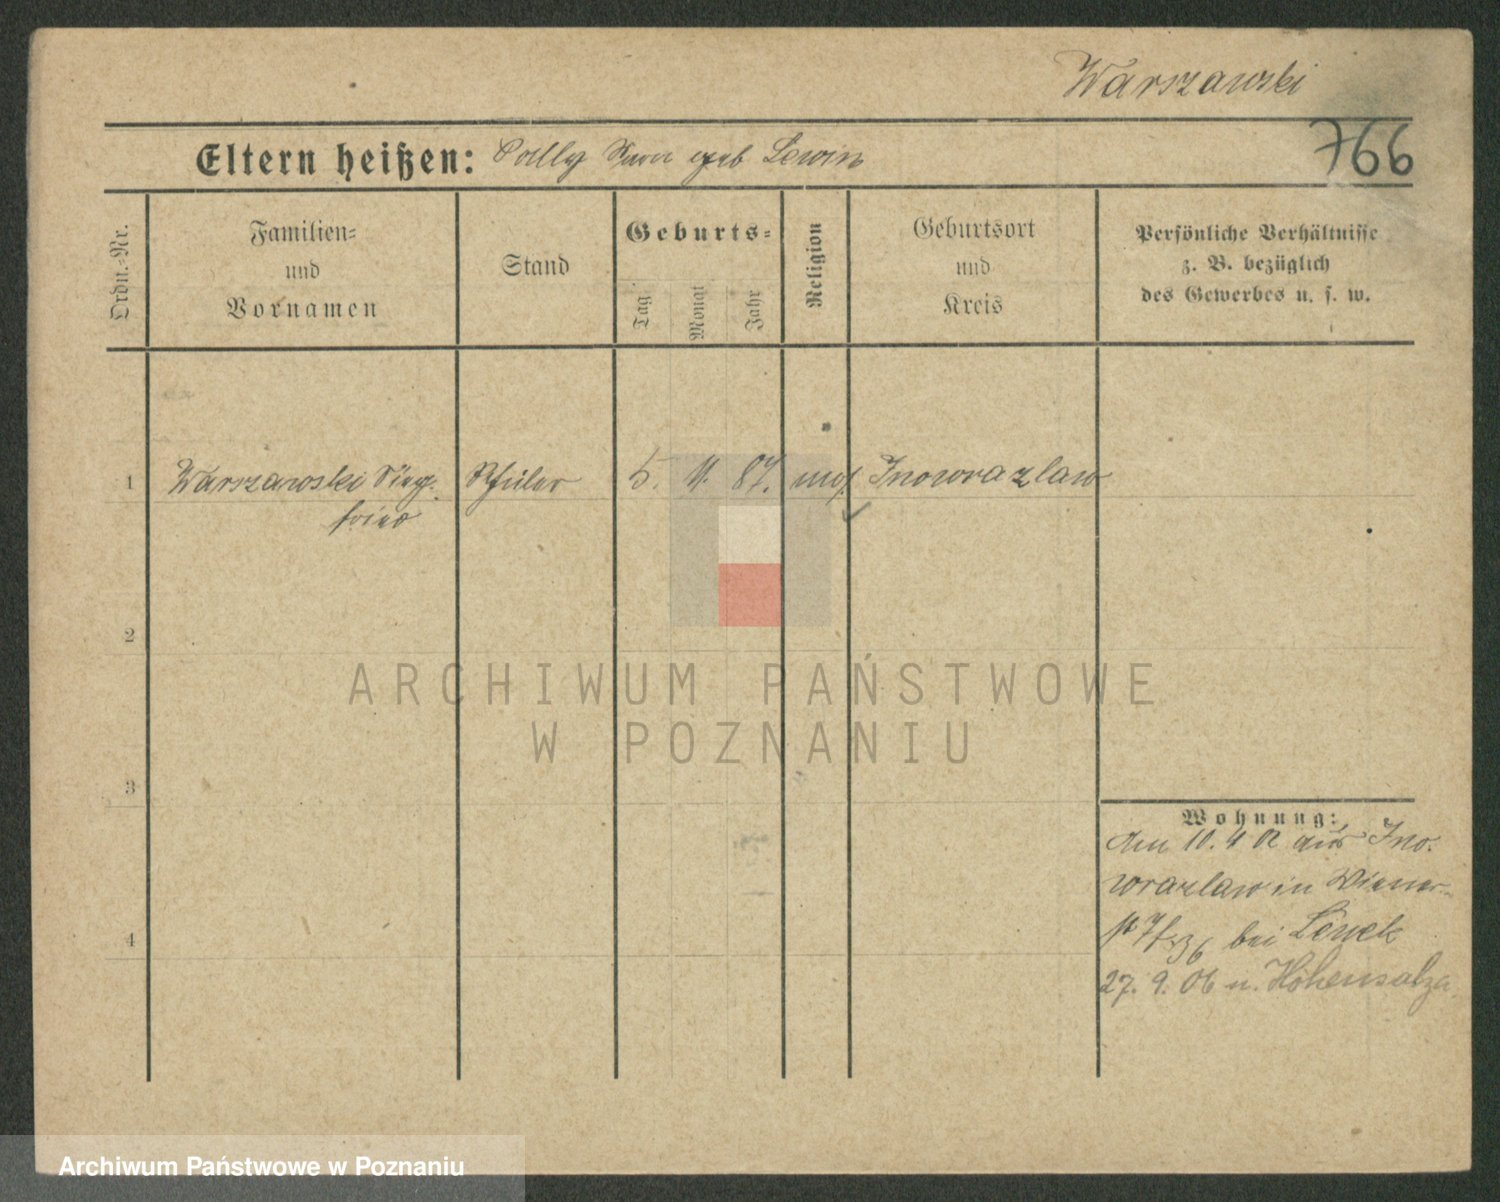 Warszawski
766
Eltern heißen: Sally geb Lewin
Ordn.-Nr.
Familien-
und
Vornamen
Stand
Geburts-
Tag
Monat
Jahr
Religion
Geburtsort
und
Kreis
Persönliche Verhältnisse
z. B. bezüglich
des Gewerbes u. s. w.
1 Warszawski Sieg- Schüler 5. 11. 87. mos. Inowrazlaw
fried
2
3
4
Wohnung:
Am 10. 4 02 aus Ino.
wrazlaw in Wiener-
bei
27. 9. 06 n. Hohensalza
ARCHIWUM PAŃSTWOWE
W POZNANIU
Archiwum Państwowe w Poznaniu